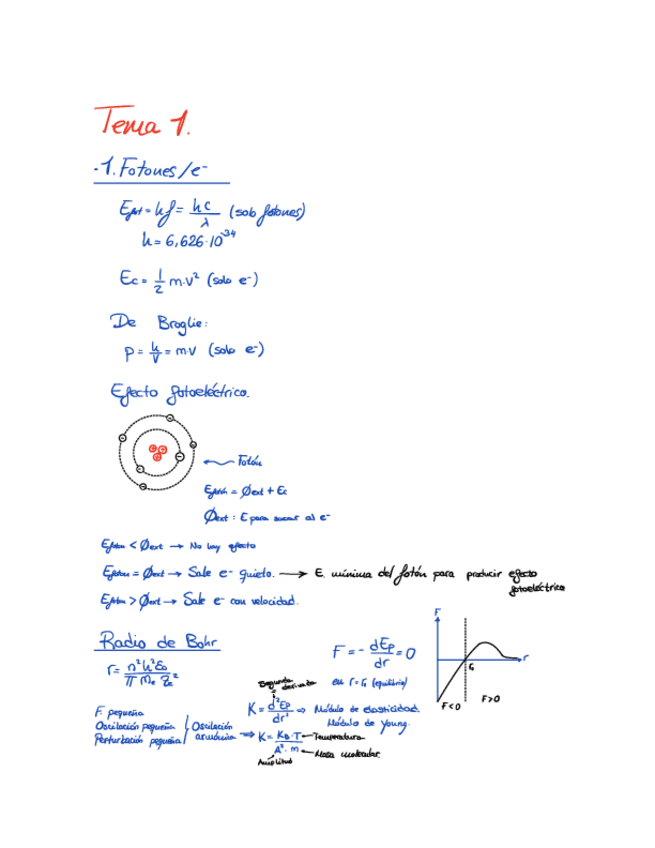 Tema 1.
-1. Fotones/e⁻
E_fot = hf = hc/λ (solo fotones)
h = 6,626·10⁻³⁴
Ec = 1/2 m·v² (solo e⁻)
De Broglie:
p = h/λ = m·v (solo e⁻)
Efecto fotoeléctrico.
Fotón
E_fotón = Øext + Ec
Øext : E para sacar al e⁻
E_foton < Øext → No hay efecto
E_foton = Øext → Sale e⁻ quieto. → E. mínima del fotón para producir efecto fotoeléctrico
E_foton > Øext → Sale e⁻ con velocidad.
Radio de Bohr
r = n²h²ε₀/π mₑ qₑ²
F = - dEp/dr = 0
en r = r₀ (equilibrio)
F
r
r₀
F<0
F>0
Segunda derivada
K = d²Ep/dr² ⇒ Módulo de elasticidad.
Módulo de Young.
F. pequeña
Oscilación pequeña
Perturbación pequeña
Oscilación armónica ⇒ K = K_B·T/A²·m
Temperatura
Masa molecular.
Amplitud